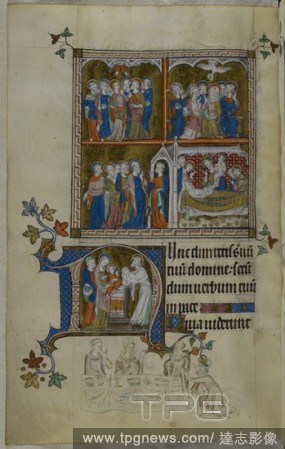 Nunc dimittis ẜuū
tuū domine secū
dum verbum tuū
in pace
Quia viderunt
TPG
www.tpgnews.com/ 達志影像